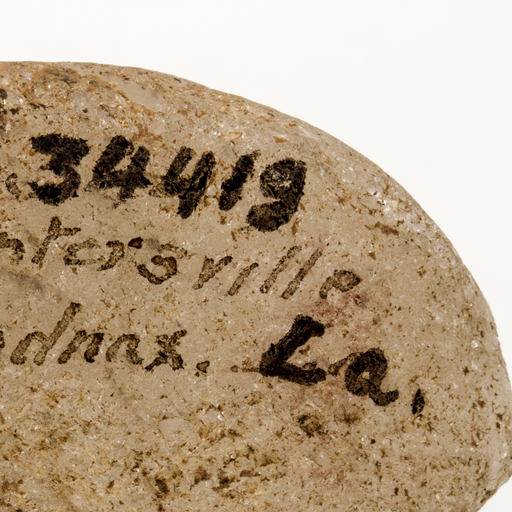 34419
ntersville
dnax. La.